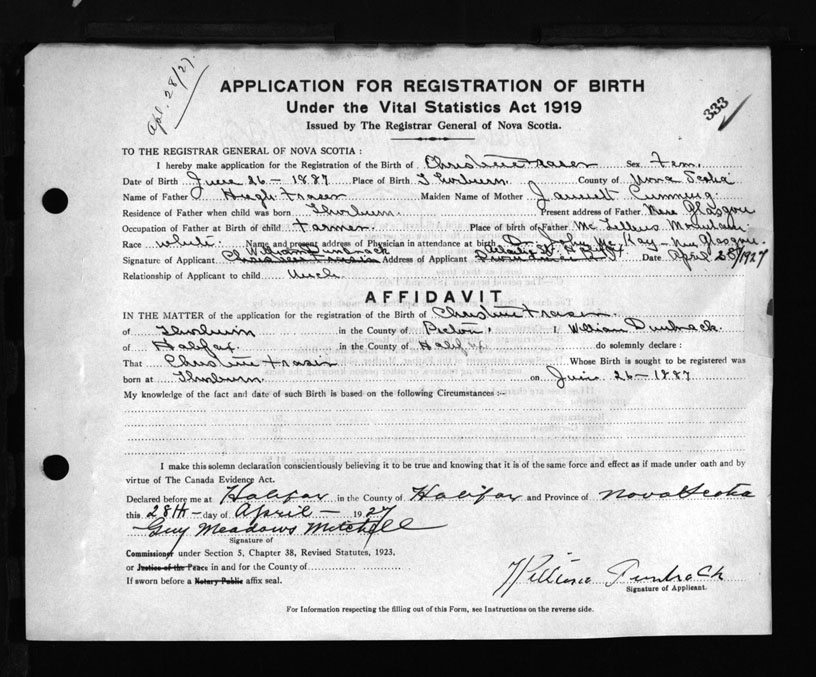 Apl. 28/27.
APPLICATION FOR REGISTRATION OF BIRTH
Under the Vital Statistics Act 1919
333
Issued by The Registrar General of Nova Scotia.
TO THE REGISTRAR GENERAL OF NOVA SCOTIA :
I hereby make application for the Registration of the Birth of Christine Fraser Sex Fem.
Date of Birth June 26 - 1887 Place of Birth Thorburn. County of Nova Scotia
Name of Father Hugh Fraser Maiden Name of Mother Cumming.
Residence of Father when child was born Thorburn. Present address of Father New Glasgow
Occupation of Father at Birth of child Farmer. Place of birth of Father Mc Lellans
Race white. Name and present address of Physician in attendance at birth Dr. John McKay - New Glasgow.
William Dunbrack
Signature of Applicant Address of Applicant Date April 28/1927
Relationship of Applicant to child Uncle.
AFFIDAVIT
IN THE MATTER of the application for the registration of the Birth of Christine Fraser.
of Thorburn in the County of Pictou. I William Dunbrack.
of Halifax. in the County of Halifax do solemnly declare :
That Christine Fraser Whose Birth is sought to be registered was
born at Thorburn. on June 26 - 1887
My knowledge of the fact and date of such Birth is based on the following Circumstances :-
I make this solemn declaration conscientiously believing it to be true and knowing that it is of the same force and effect as if made under oath and by
virtue of The Canada Evidence Act.
Declared before me at Halifax in the County of Halifax and Province of Nova Scotia
this 28th day of April - 1927
Guy Meadows Mitchell
Signature of
Commissioner under Section 5, Chapter 38, Revised Statutes, 1923,
or Justice of the Peace in and for the County of
If sworn before a Notary Public affix seal.
William Dunbrack
Signature of Applicant.
For Information respecting the filling out of this Form, see Instructions on the reverse side.